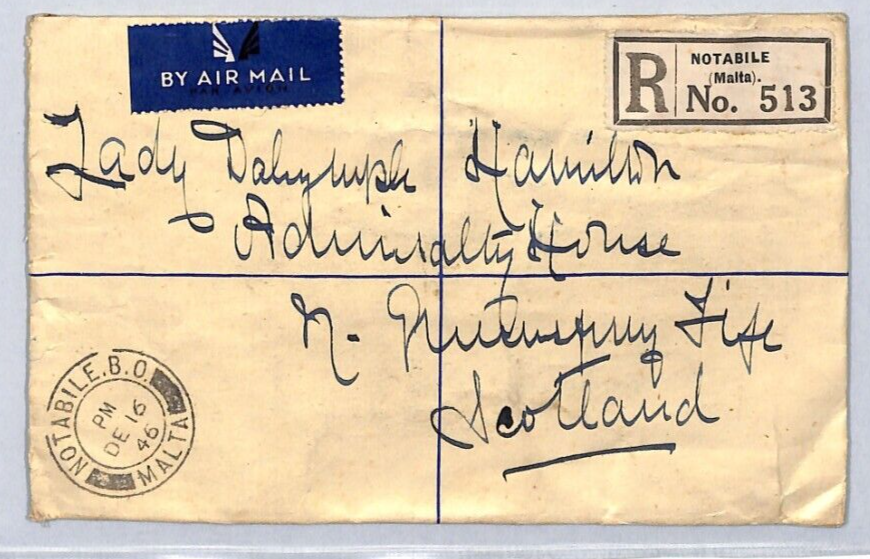 BY AIR MAIL
PAR AVION
R
NOTABILE
(Malta).
No. 513
Lady Dalrymple Hamilton
Admiralty House
N. Queensferry Fife
Scotland
NOTABILE.B.O.
PM
DE 16
46
MALTA